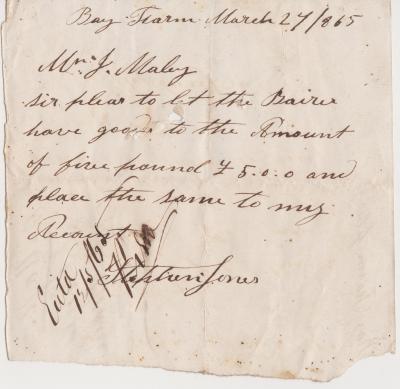 Bay Farm March 27/1865
Mr J. Maley
sir pleas to let the Bairer
have goods to the Amount
of five pound £5.0.0 and
place the same to my
Account
Stephen Jones
Entd